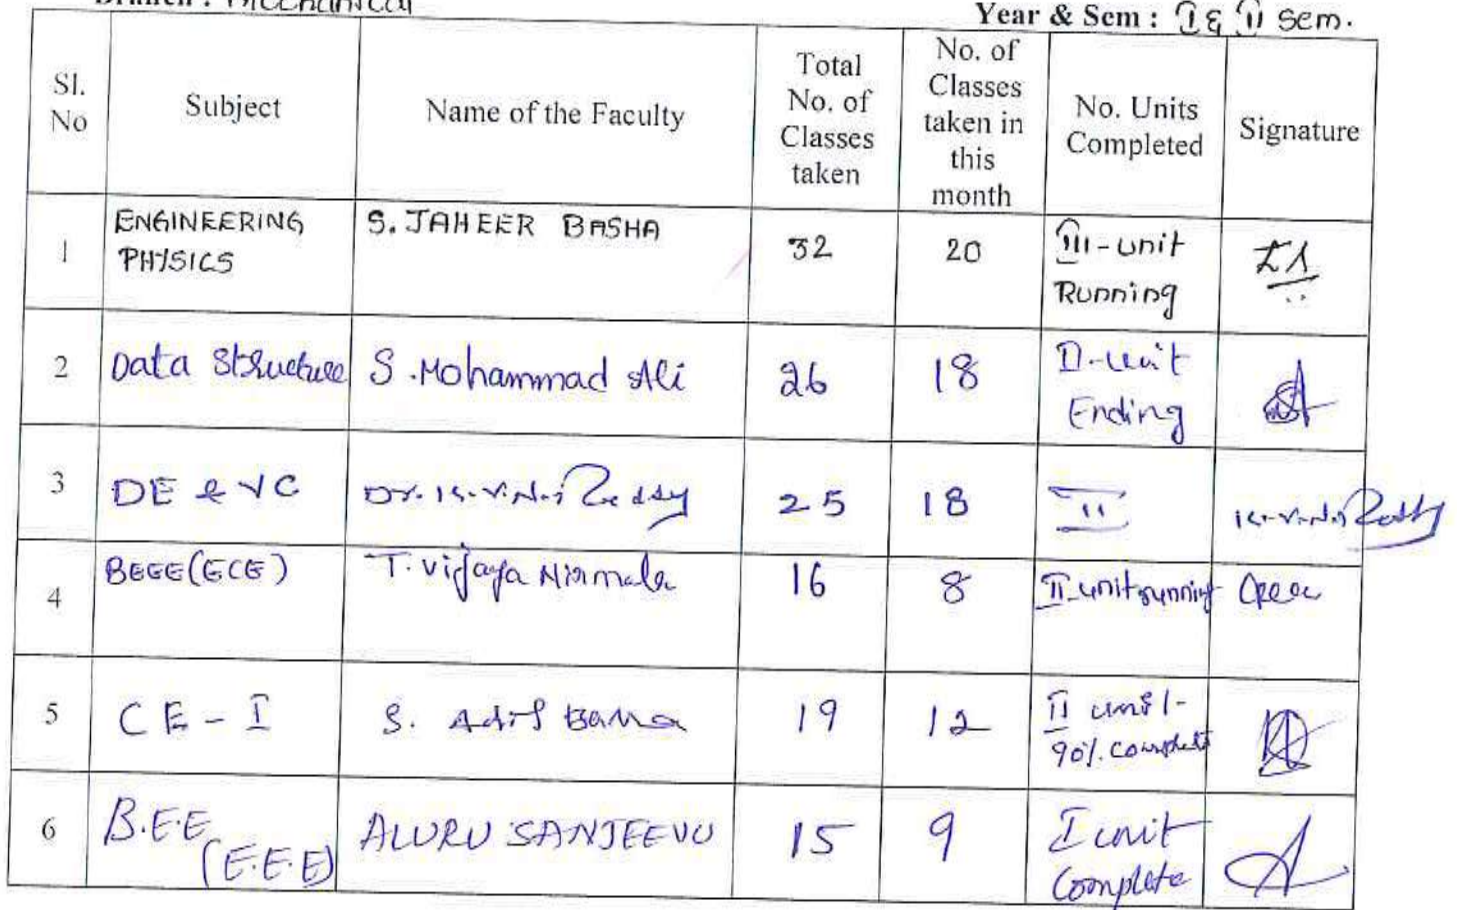 Branch : Mechanical
Year & Sem : I & II Sem.
Sl. No
Subject
Name of the Faculty
Total No. of Classes taken
No. of Classes taken in this month
No. Units Completed
Signature
1
ENGINEERING PHYSICS
S. JAHEER BASHA
32
20
III-unit Running
2
Data Structure
S. Mohammad Ali
26
18
II-unit Ending
3
DE & VC
Dr. K.V.N. Reddy
25
18
II
K.V.N. Reddy
4
BEEE(ECE)
T. Vijaya Nirmala
16
8
II unit running
5
CE - I
S.
19
12
II unit- 90%. Complete
6
B.E.E (E.E.E)
ALURU SANJEEVU
15
9
I unit Complete